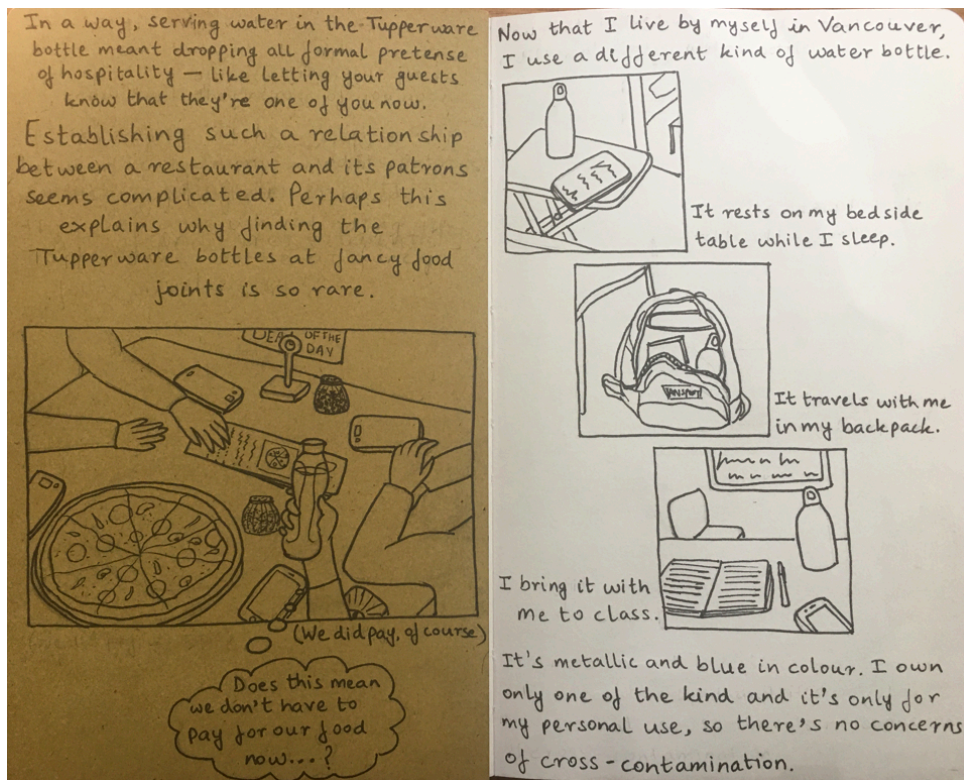 In a way, serving water in the Tupperware
bottle meant dropping all formal pretense
of hospitality — like letting your guests
know that they're one of you now.
Establishing such a relationship
between a restaurant and its patrons
seems complicated. Perhaps this
explains why finding the
Tupperware bottles at fancy food
joints is so rare.
OF THE
DAY
(We did pay, of course)
Does this mean
we don't have to
pay for our food
now...?
Now that I live by myself in Vancouver,
I use a different kind of water bottle.
It rests on my bedside
table while I sleep.
It travels with me
in my backpack.
I bring it with
me to class.
It's metallic and blue in colour. I own
only one of the kind and it's only for
my personal use, so there's no concerns
of cross-contamination.